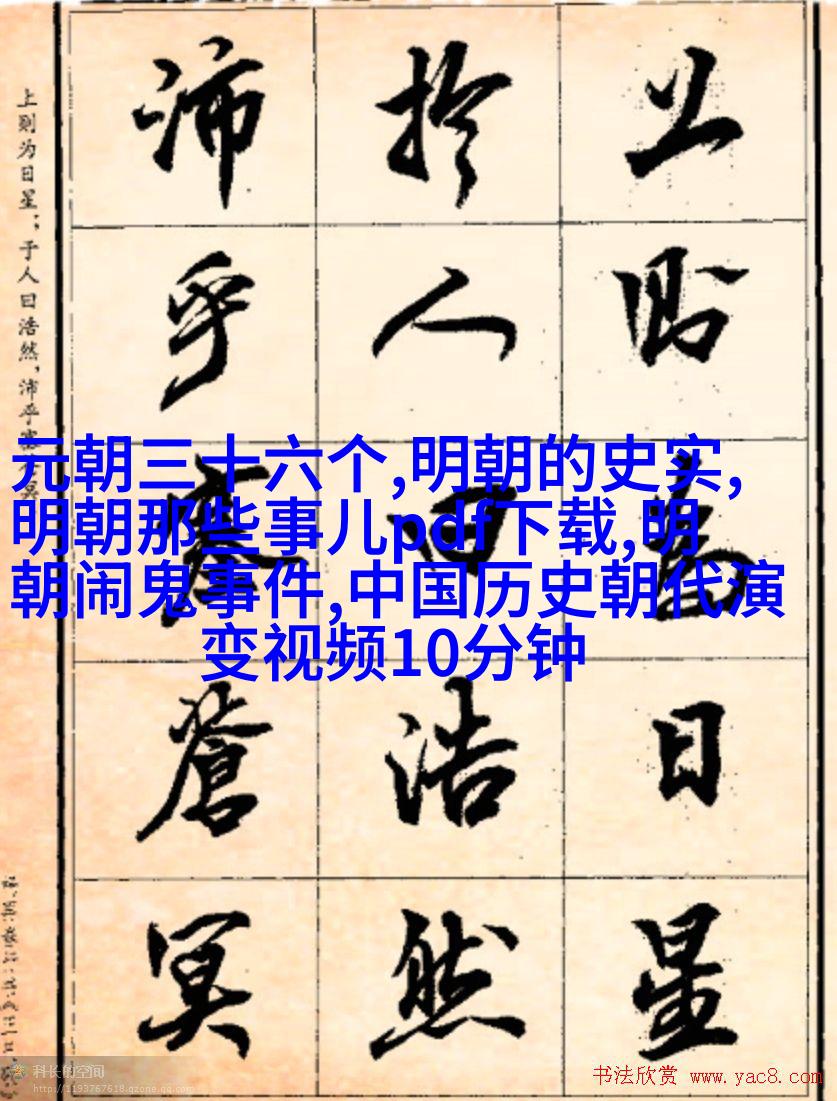 上则为日星；于人曰浩然，沛乎塞苍冥
上则为日星
於人曰浩然
沛乎塞蒼冥
元朝三十六个,明朝的史实,
明朝那些事儿pdf下载,明
朝闹鬼事件,中国历史朝代演
变视频10分钟
科长的空间
http://1193767618.qzone.qq.com
书法欣赏 www.yac8.com